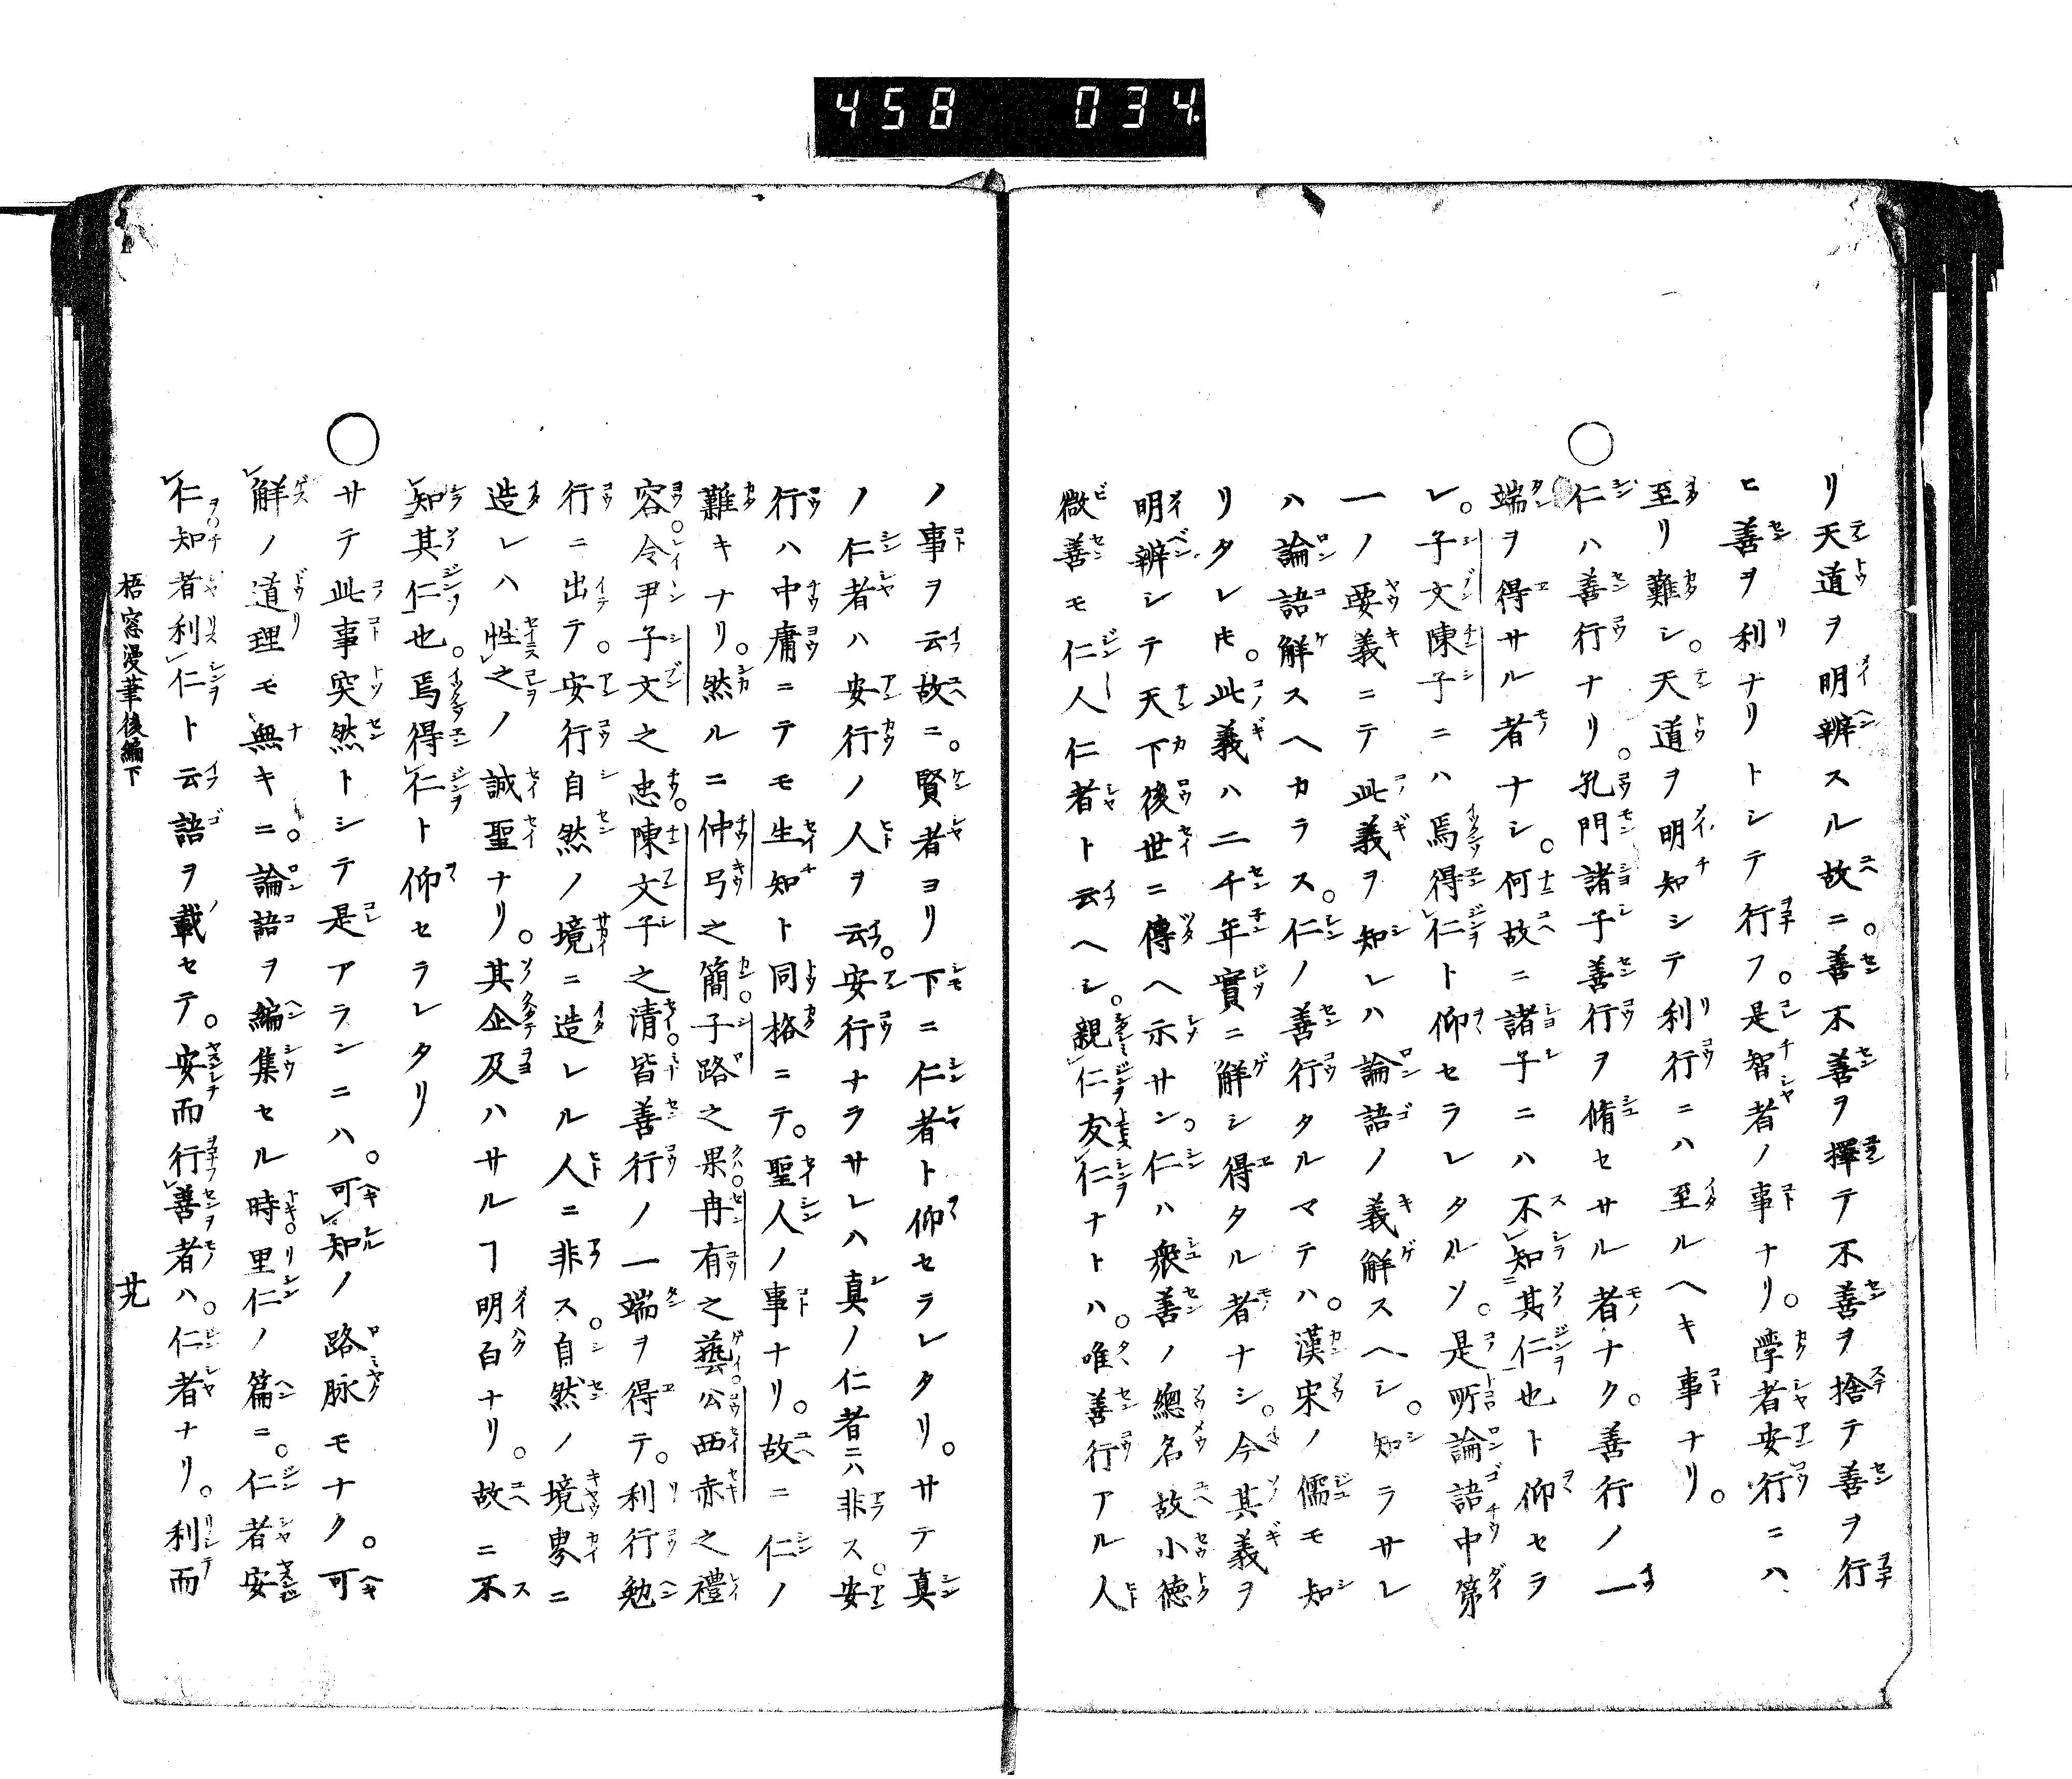 458 034
リ天道ヲ明辨スル故ニ。善不善ヲ擇テ不善ヲ捨テ善ヲ行
ヒ善ヲ利ナリトシテ行フ。是智者ノ事ナリ。學者安行ニハ
至リ難シ。天道ヲ明知シテ利行ニハ至ルヘキ事ナリ。
○仁ハ善行ナリ。孔門諸子善行ヲ脩セサル者ナク。善行ノ一
端ヲ得サル者ナシ。何故ニ諸子ニハ不知其仁也ト仰セラ
レ。子文陳子ニハ焉得仁ト仰セラレタルソ。是所論語中第
一ノ要義ニテ此義ヲ知レハ論語ノ義解スヘシ。知ラサレ
ハ論語解スヘカラス。仁ノ善行タルマテハ。漢宋ノ儒モ知
リタレ𪜈。此義ハ二千年實ニ解シ得タル者ナシ。今其義ヲ
明辨シテ天下後世ニ傳ヘ示サン。仁ハ衆善ノ總名故小德
微善モ仁人仁者ト云ヘシ。親仁友仁ナトハ。唯善行アル人
ノ事ヲ云故ニ。賢者ヨリ下ニ仁者ト仰セラレタリ。サテ真
ノ仁者ハ安行ノ人ヲ云。安行ナラサレハ真ノ仁者ニハ非ス。安
行ハ中庸ニテモ生知ト同格ニテ。聖人ノ事ナリ。故ニ仁ノ
難キナリ。然ルニ仲弓之簡。子路之果。冉有之藝。公西赤之禮
容。令尹子文之忠。陳文子之清。皆善行ノ一端ヲ得テ。利行勉
行ニ出テ。安行自然ノ境ニ造レル人ニ非ス。自然ノ境界ニ
造レハ性之ノ誠聖ナリ。其企及ハサルヿ明白ナリ。故ニ不
知其仁也。焉得仁ト仰セラレタリ
○サテ此事突然トシテ是アランニハ。可知ノ路脉モナク。可
解ノ道理モ無キニ。論語ヲ編集セル時。里仁ノ篇ニ。仁者安
仁知者利仁ト云語ヲ載セテ。安而行善者ハ。仁者ナリ。利而
梧窓漫筆後編下
廿九